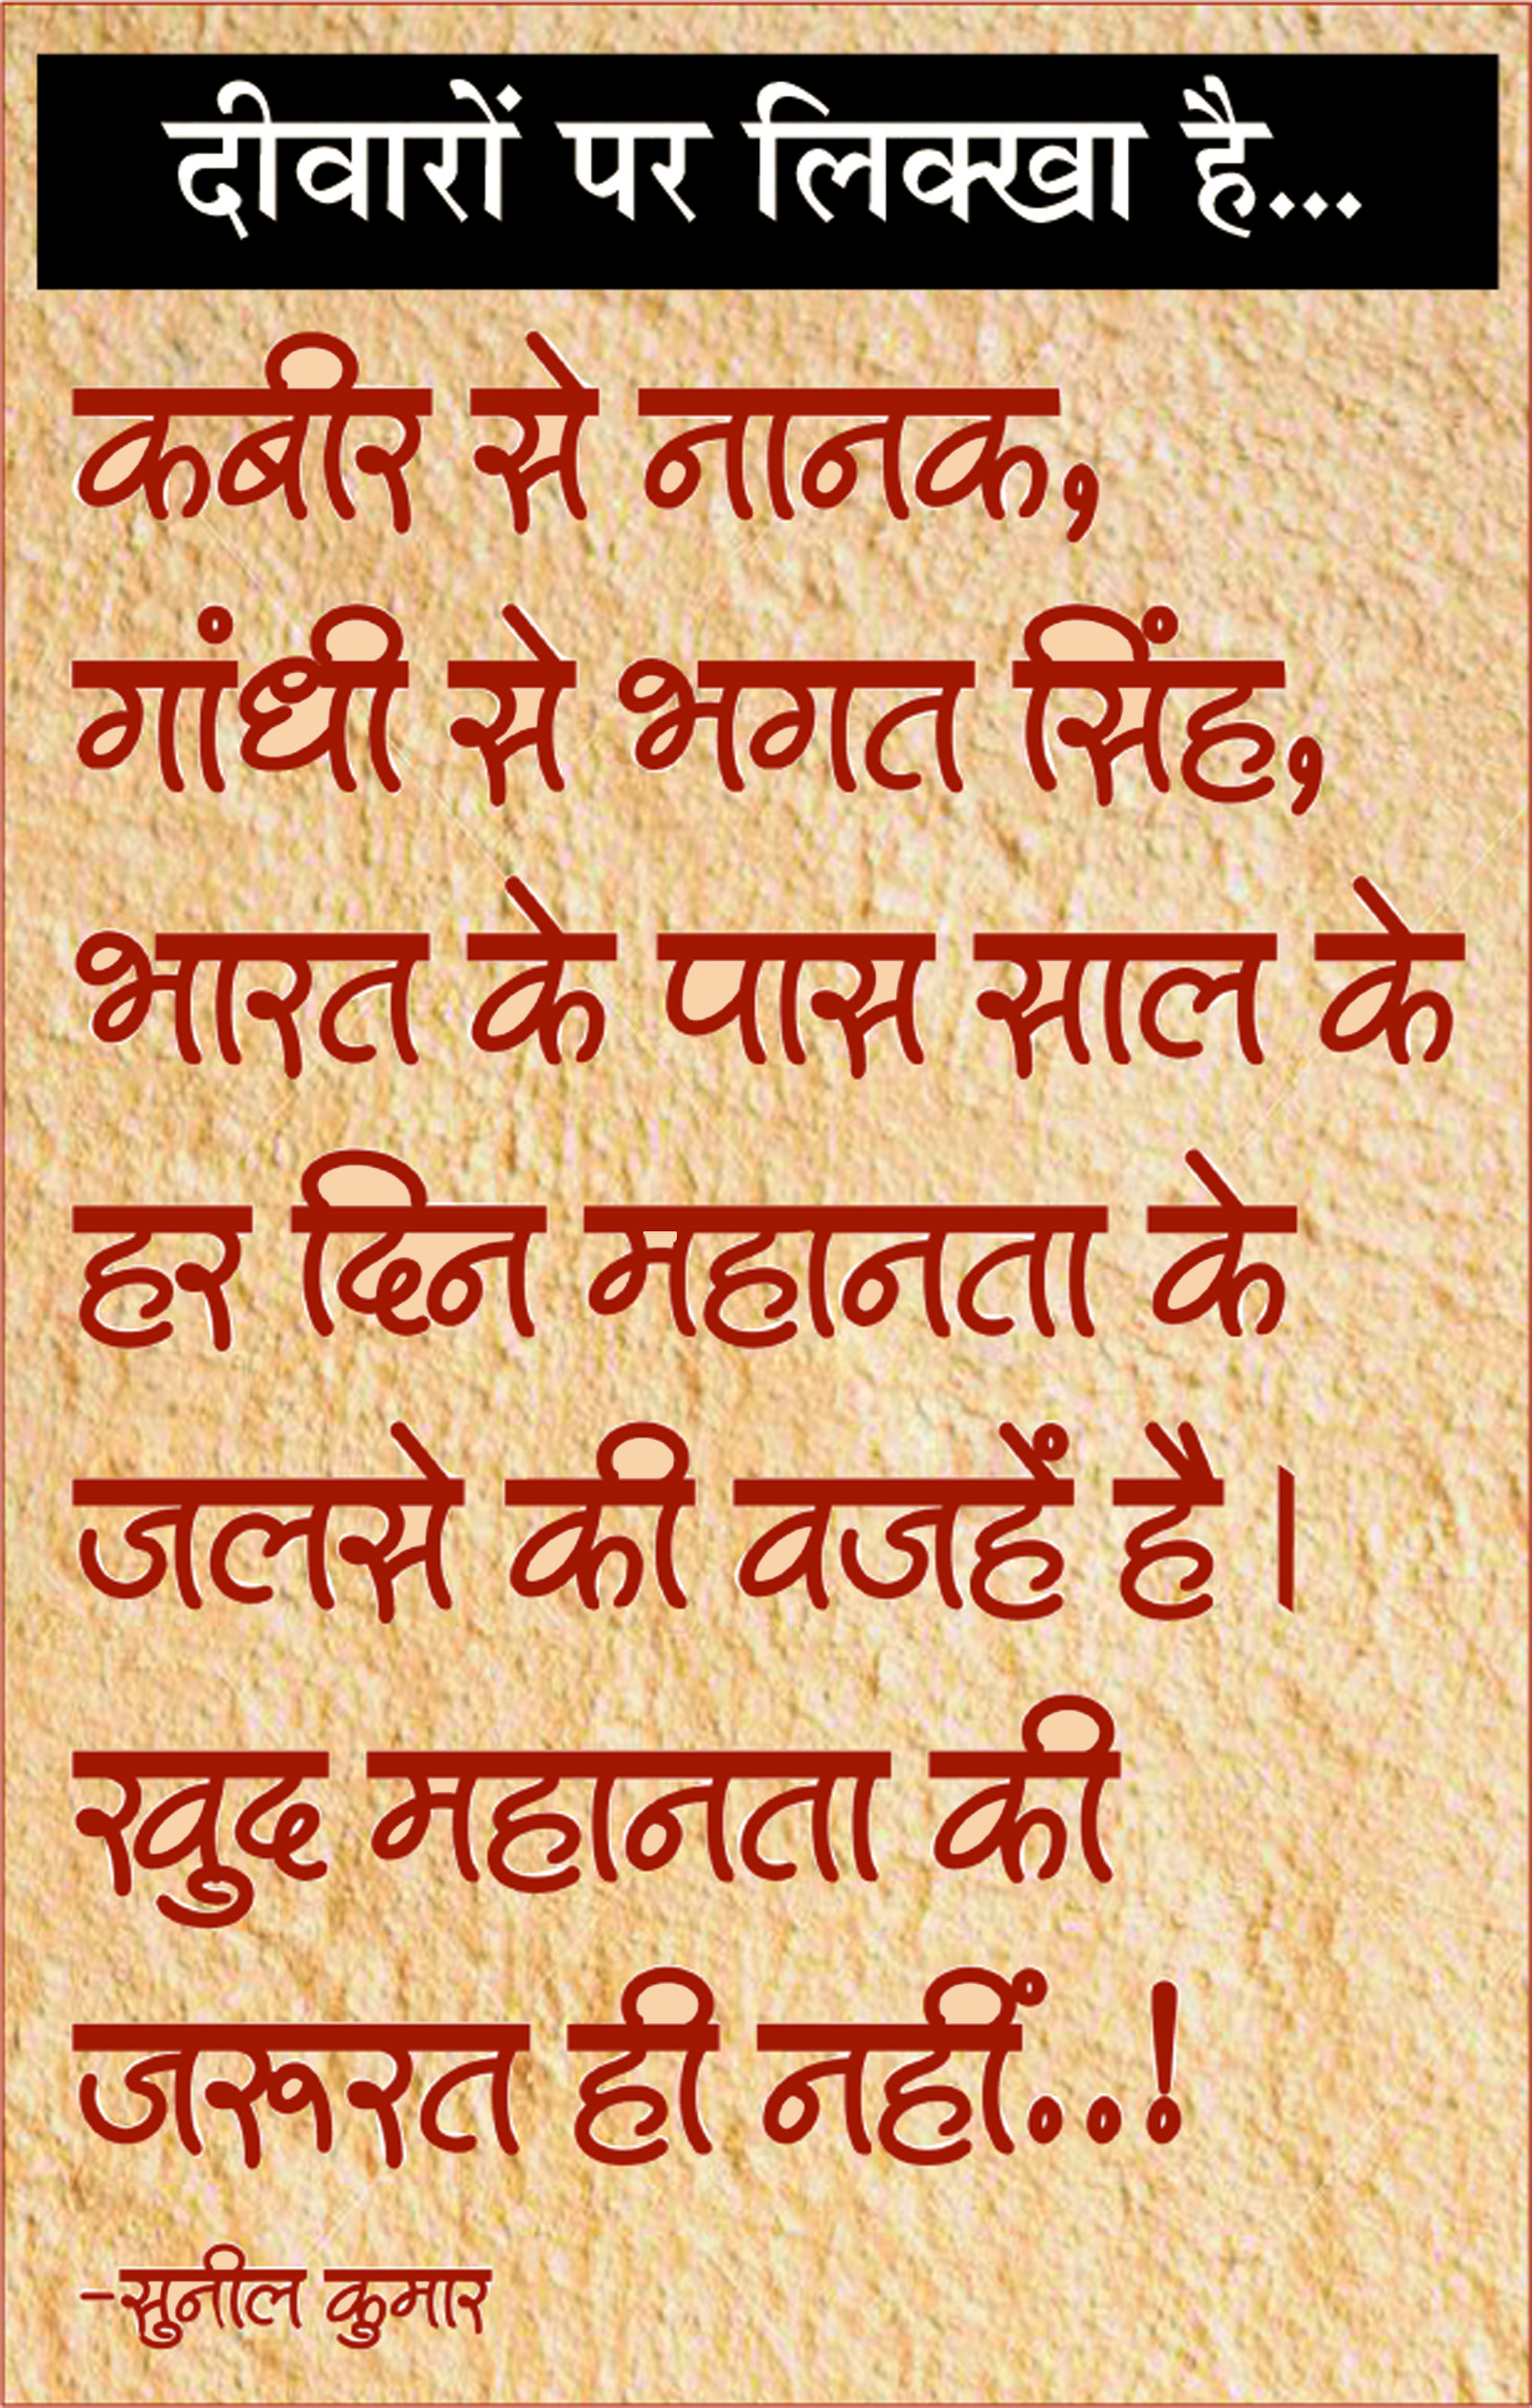 दीवारों पर लिक्खा है...
कबीर से नानक,
गांधी से भगत सिंह,
भारत के पास साल के
हर दिन महानता के
जलसे की वजहें है।
खुद महानता की
जरूरत ही नहीं..!
-सुनील कुमार